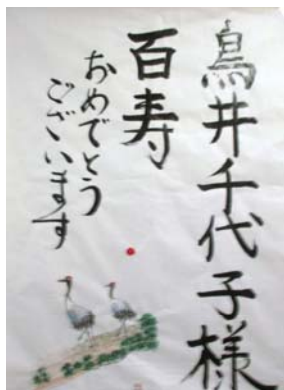 鳥井千代子様
百寿
おめでとう
ございます